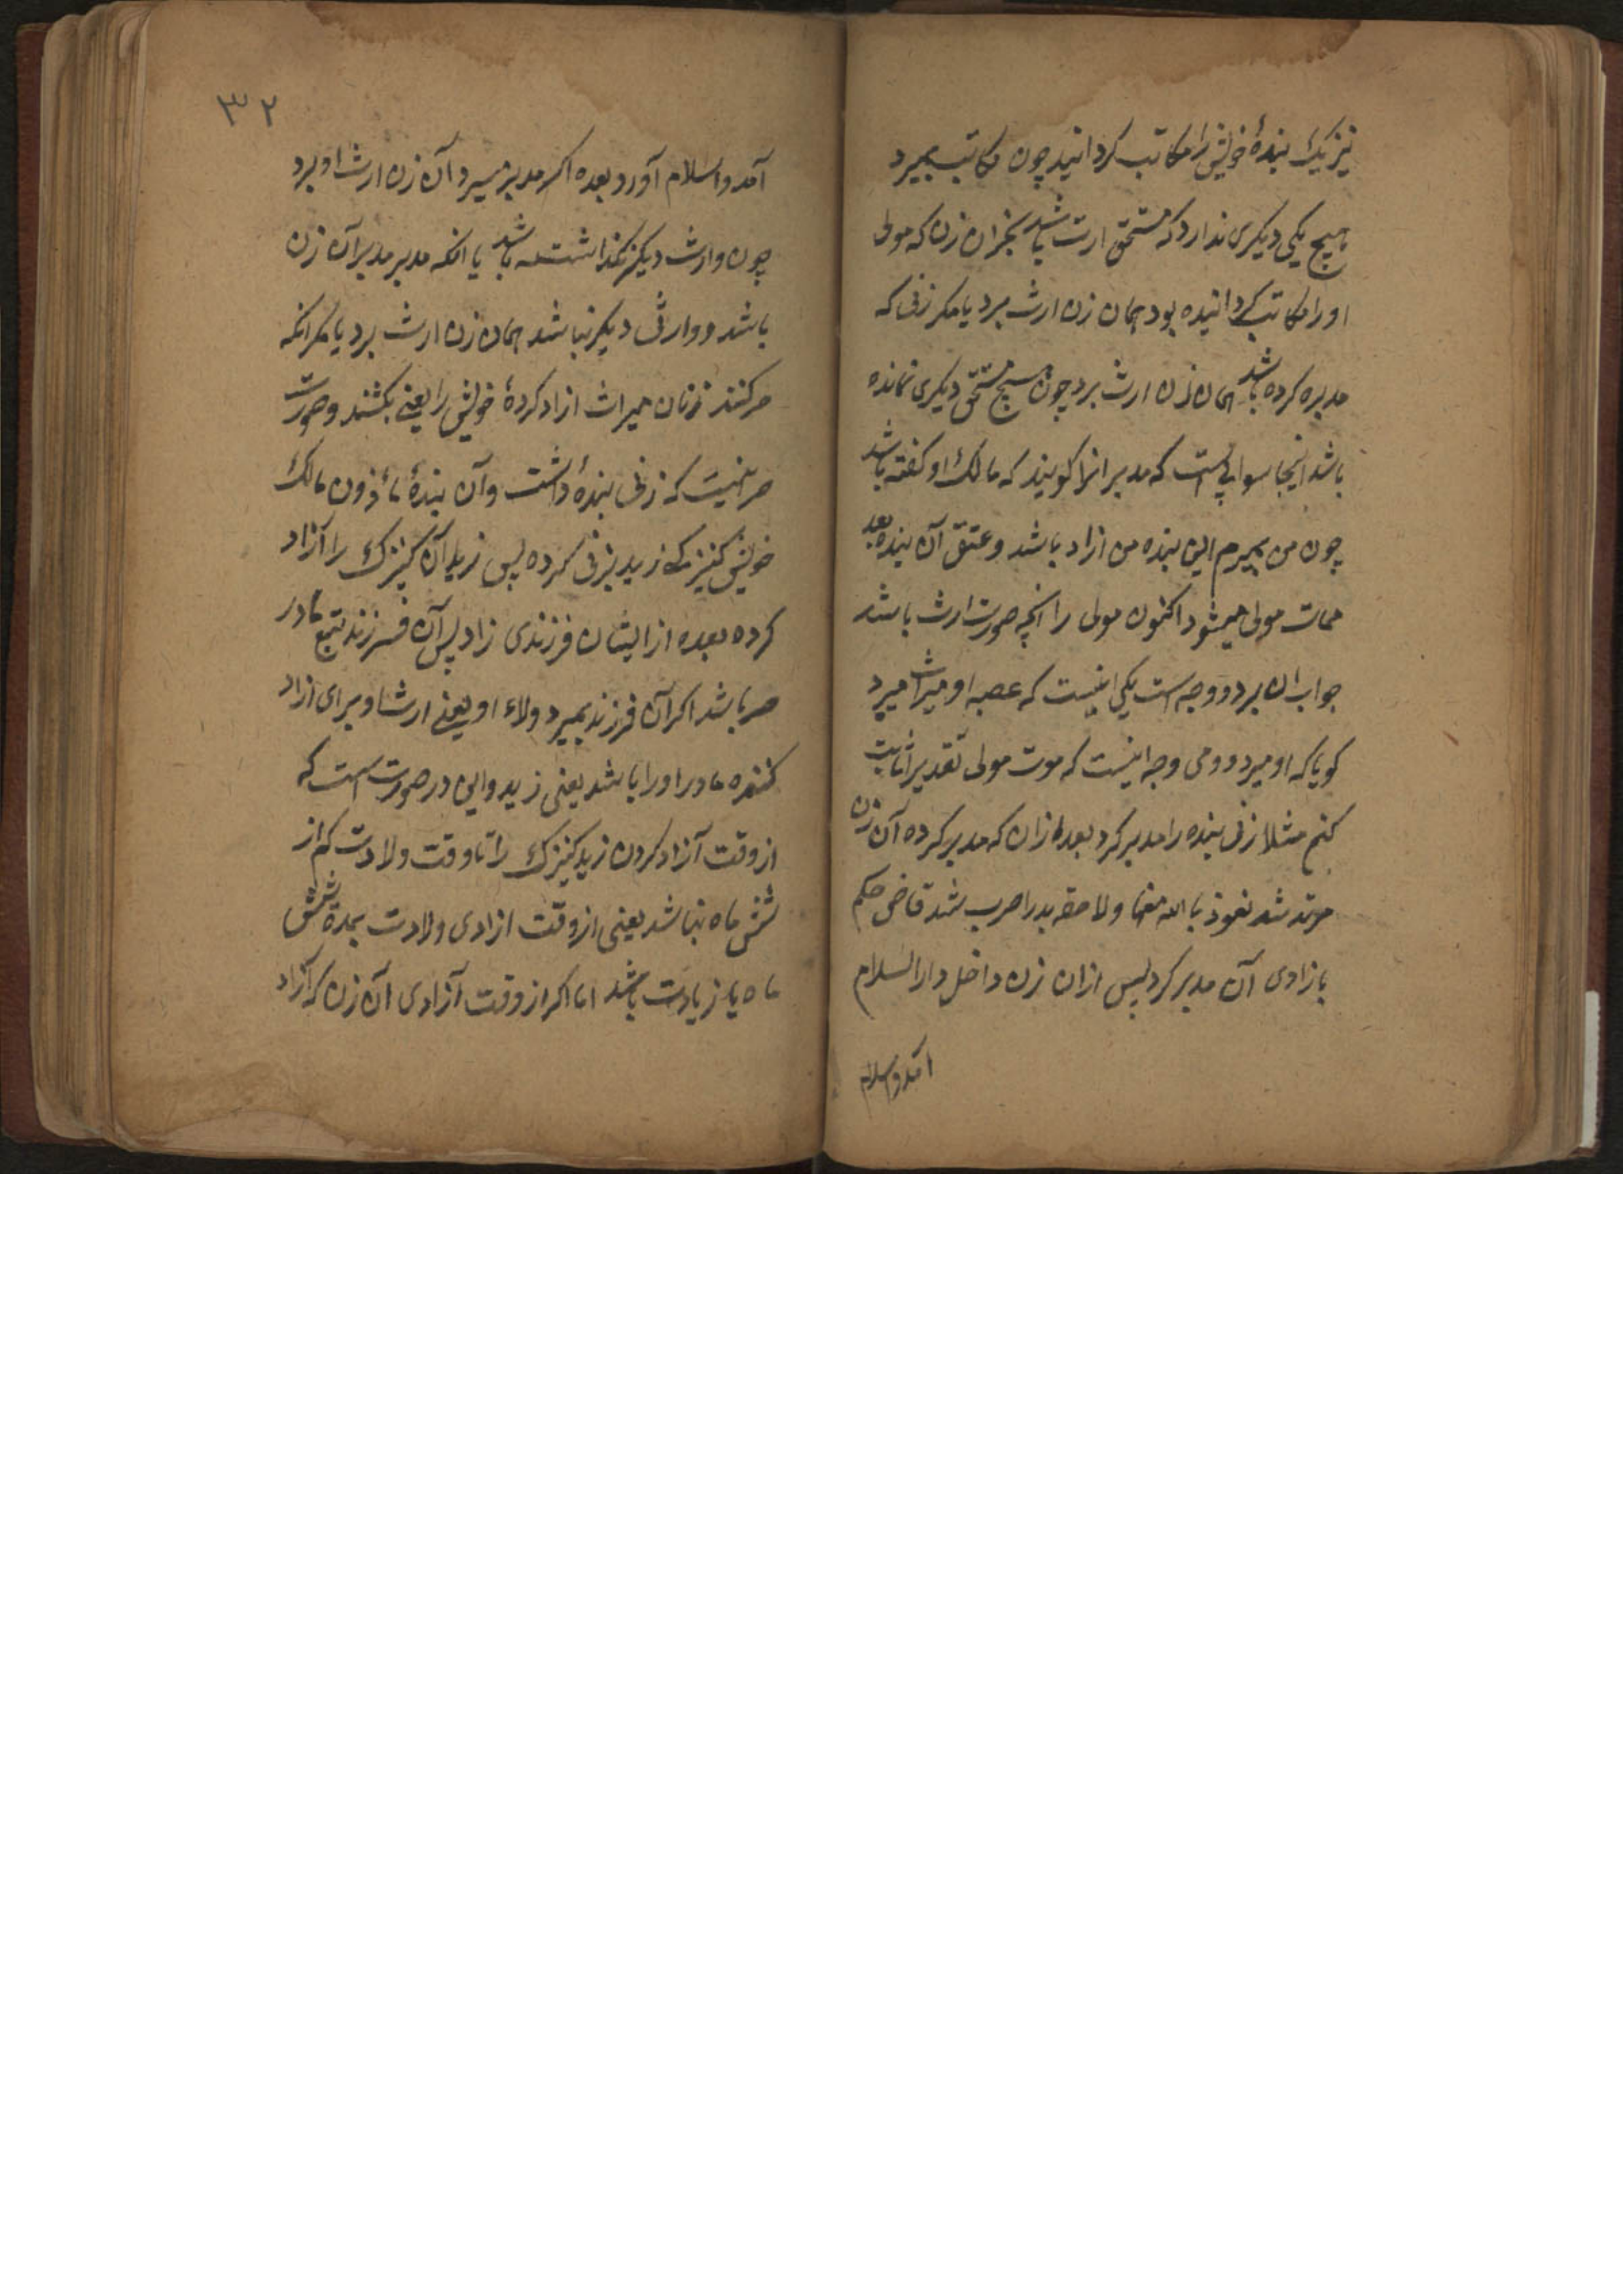 نیز یک بندهٔ خویش را مکاتب کردانید چون مکاتب بمیرد
و هیچ یکی دیکری ندارد که مستحق ارث باشد بجز آن زن که مولی
او را مکاتب کردانیده بود همان زن ارث برد یا مکر زنی که
مدبره کرده باشد همان زن ارث برد چون هیچ مستحق دیکری نمانده
باشد اینجا سوالی است که مدبر انرا کویند که مالک او کفته باشد
چون من بمیرم این بنده من ازاد باشد و عتق آن بنده بعد
ممات مولی میشود اکنون مولی را انچه صورت ارث باشد
جواب ان بر دو وجه است یکی اینست که عصبه او میراث میبرد
کویا که او میبرد دومی وجه اینست که موت مولی تقدیرا ثابت
کنم مثلا زنی بنده را مدبر کرد بعد ازان که مدبر کرده آن زن
مرتد شد نعوذ بالله منها و لاحقه بدار حرب شد قاضی حکم
بازادی آن مدبر کرد پس ازان زن داخل دار السلام
آمد و اسلام
۳۲
آمد و اسلام آورد بعده اکر مدبر میرد آن زن ارث او برد
چون وارث دیکر نکذاشته باشد یا انکه مدبر مدبر آن زن
باشد و وارثی دیکر نباشد همان زن ارث برد یا مکر انکه
جر کنند زنان میراث ازاد کردهٔ خویش را یعنی بکشند و صورت
جر اینست که زنی بندهٔ داشت و آن بندهٔ مأذون مالک
خویش کنیزک زید بزنی کرده پس زید آن کنیزک را آزاد
کرده بعده از ایشان فرزندی زاد پس آن فرزند بتبع مادر
حر باشد اکر آن فرزند بمیرد ولاء او یعنی ارث او برای ازاد
کننده مادر او را باشد یعنی زید و این در صورت است که
از وقت آزاد کردن زید کنیزک را تا وقت ولادت کم از
شش ماه نباشد یعنی از وقت ازادی ولادت بمدة شش
ماه یا زیادت باشد اما اکر از وقت آزادی آن زن که آزاد